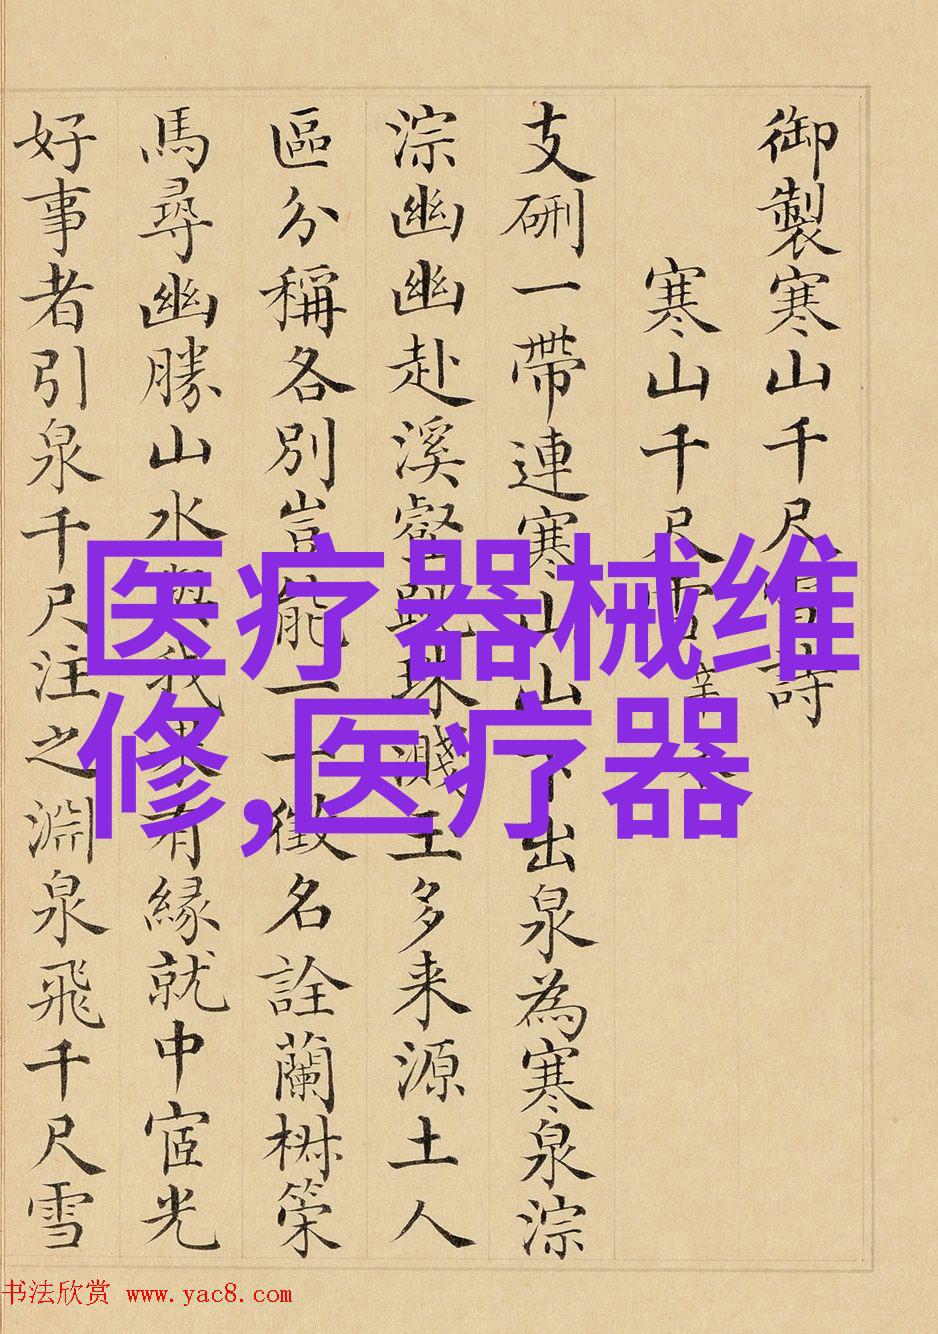 御製寒山千尺雪詩
寒山千尺雪
支硎一帶連寒山山下出泉為寒泉淙
淙幽幽赴溪壑跳珠濺玉多来源土人
區分稱各別豈能一一徵名詮蘭椒策
馬尋幽勝山水與我果有緣就中宧光
好事者引泉千尺注之淵泉飛千尺雪
医疗器械维
修,医疗器
书法欣赏 www.yac8.com